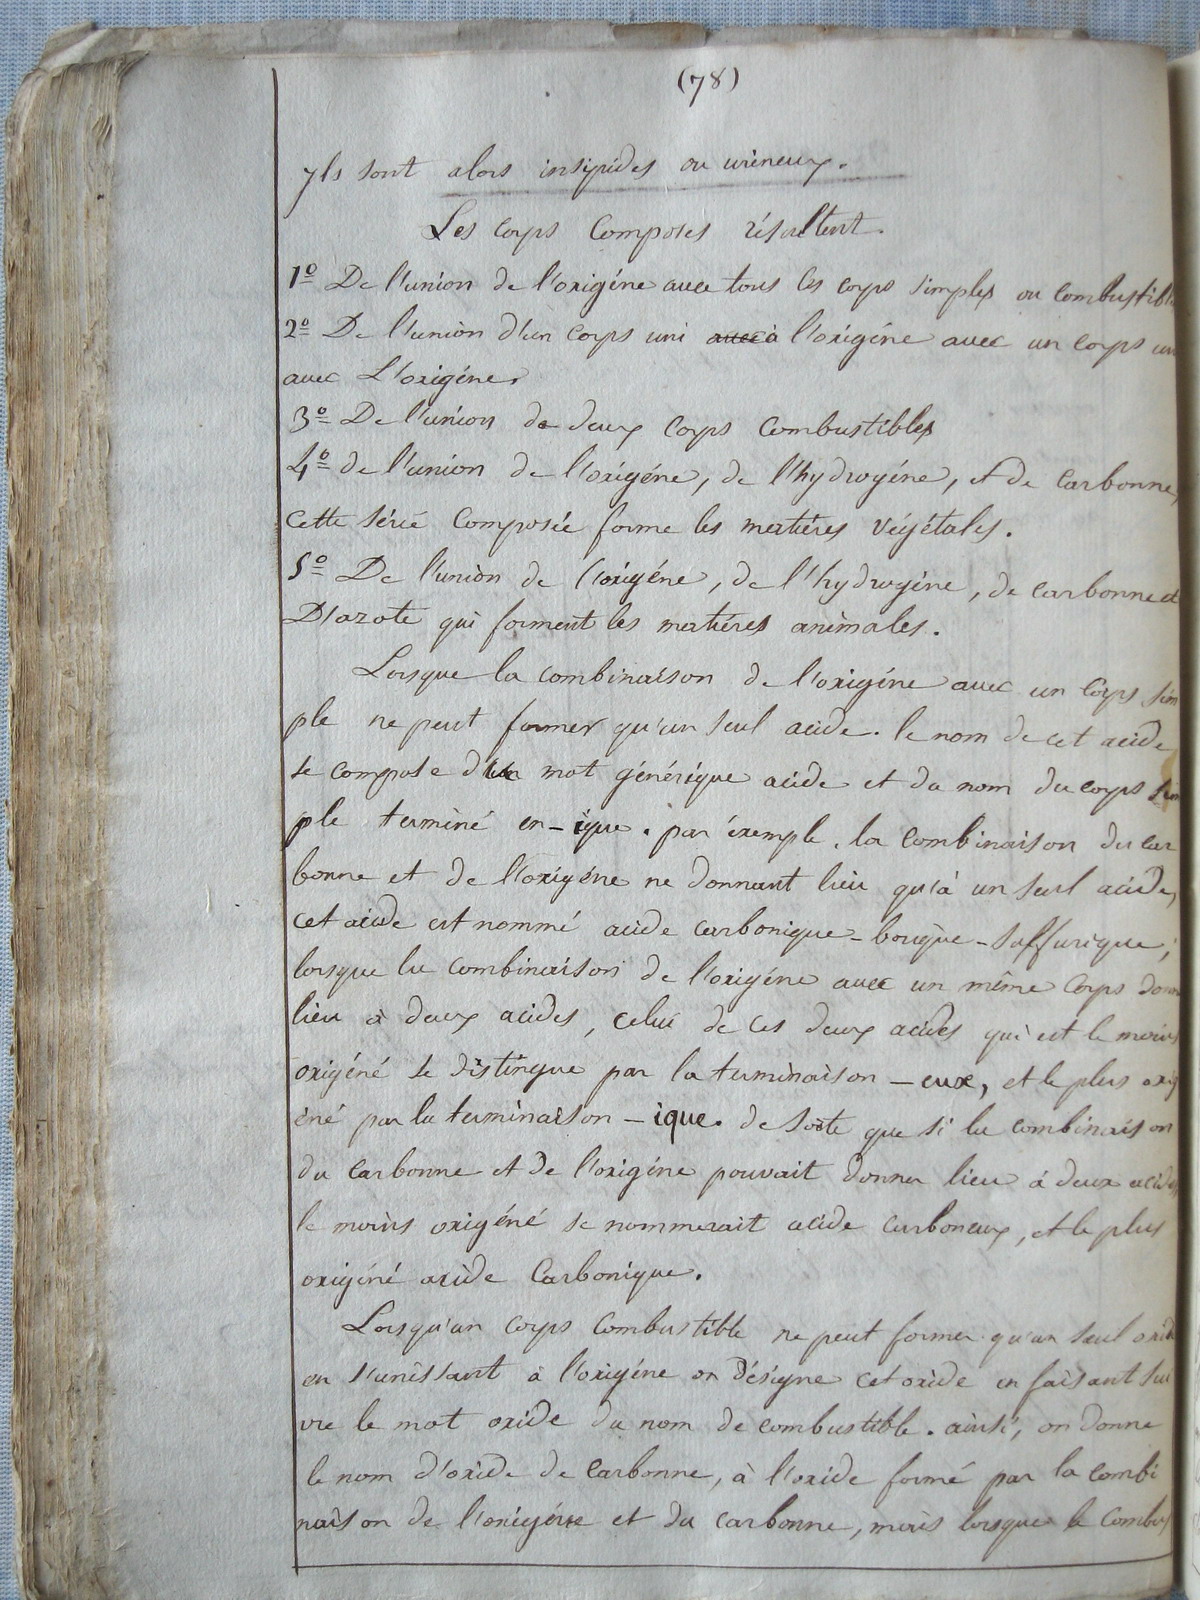 (78)
yls sont alors insipides ou urineux.
Les corps Composés résultent.
1º De l'union de l'oxigéne avec tous les corps simples ou combustibles
2º De l'union d'un corps uni avec à l'oxigéne avec un corps uni
avec L'oxigéne,
3º De l'union de deux corps Combustibles
4º de l'union de l'oxigéne, de l'hydrogéne, et de Carbonne,
Cette série Composée forme les matiéres végétales.
5º De l'union de l'oxigéne, de l'hydrogéne, de carbonne et
D'azote qui forment les matiéres animales.
Lorsque la combinaison de l'oxigéne avec un Corps sim
ple ne peut former qu'un seul acide. le nom de cet acide
se compose d'un mot générique acide et du nom du corps sim
ple terminé en-ique. par éxemple, la combinaison du car
bonne et de l'oxigéne ne donnant lieu qu'à un seul acide,
cet acide est nommé acide carbonique - - sulfurique;
lorsque la combinaison de l'oxigéne avec un même Corps donne
lieu à deux acides, celui de ces deux acides qui est le moins
oxigéné se distingue par la terminaison - eux, et le plus oxig
éné par la terminaison - ique. de sorte que si la combinaison
du carbonne et de l'oxigéne pouvait donner lieu à deux acides
le moins oxigéné se nommerait acide carboneux, et le plus
oxigéné acide Carbonique.
Lorsqu'un corps Combustible ne peut former qu'un seul oxide
en s'unissant à l'oxigéne on Désigne cet oxide en faisant sui
vre le mot oxide du nom de combustible. ainsi, on donne
le nom d'oxide de Carbonne, à l'oxide formé par la combi
naison de l'oxigéne et du carbonne, mais lorsque le Combus